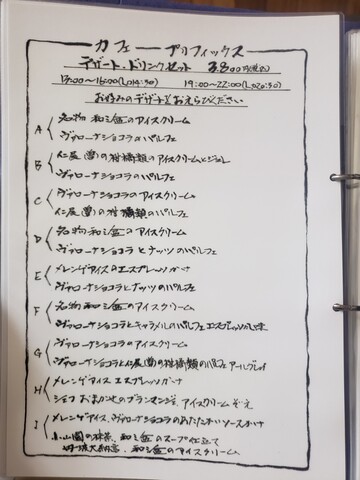 カフェ プリフィックス
デザート・ドリンクセット 3,800円(税込)
13:00〜16:00(Lo14:30) 19:00〜22:00(Lo20:30)
お好みのデザートをおえらびください
A 名物 和三盆のアイスクリーム
ヴァローナショコラのパルフェ
B 仁尾(曽)の柑橘類のアイスクリームとジュレ
ヴァローナショコラのパルフェ
C ヴァローナショコラのアイスクリーム
仁尾(曽)の柑橘類のパルフェ
D 名物 和三盆のアイスクリーム
ヴァローナショコラとナッツのパルフェ
E メレンゲアイスのエスプレッソがけ
ヴァローナショコラとナッツのパルフェ
F 名物 和三盆のアイスクリーム
ヴァローナショコラとキャラメルのパルフェ エスプレッソ風味
G ヴァローナショコラのアイスクリーム
ヴァローナショコラと仁尾(曽)の柑橘類のパルフェ アールグレイ
H メレンゲアイス エスプレッソがけ
シェフおまかせのブランマンジェ、アイスクリームぞえ
I メレンゲアイス、ヴァローナショコラのあたたかいソースがけ
小山園の抹茶、和三盆のスープ仕立て
丹波大納言、和三盆のアイスクリーム